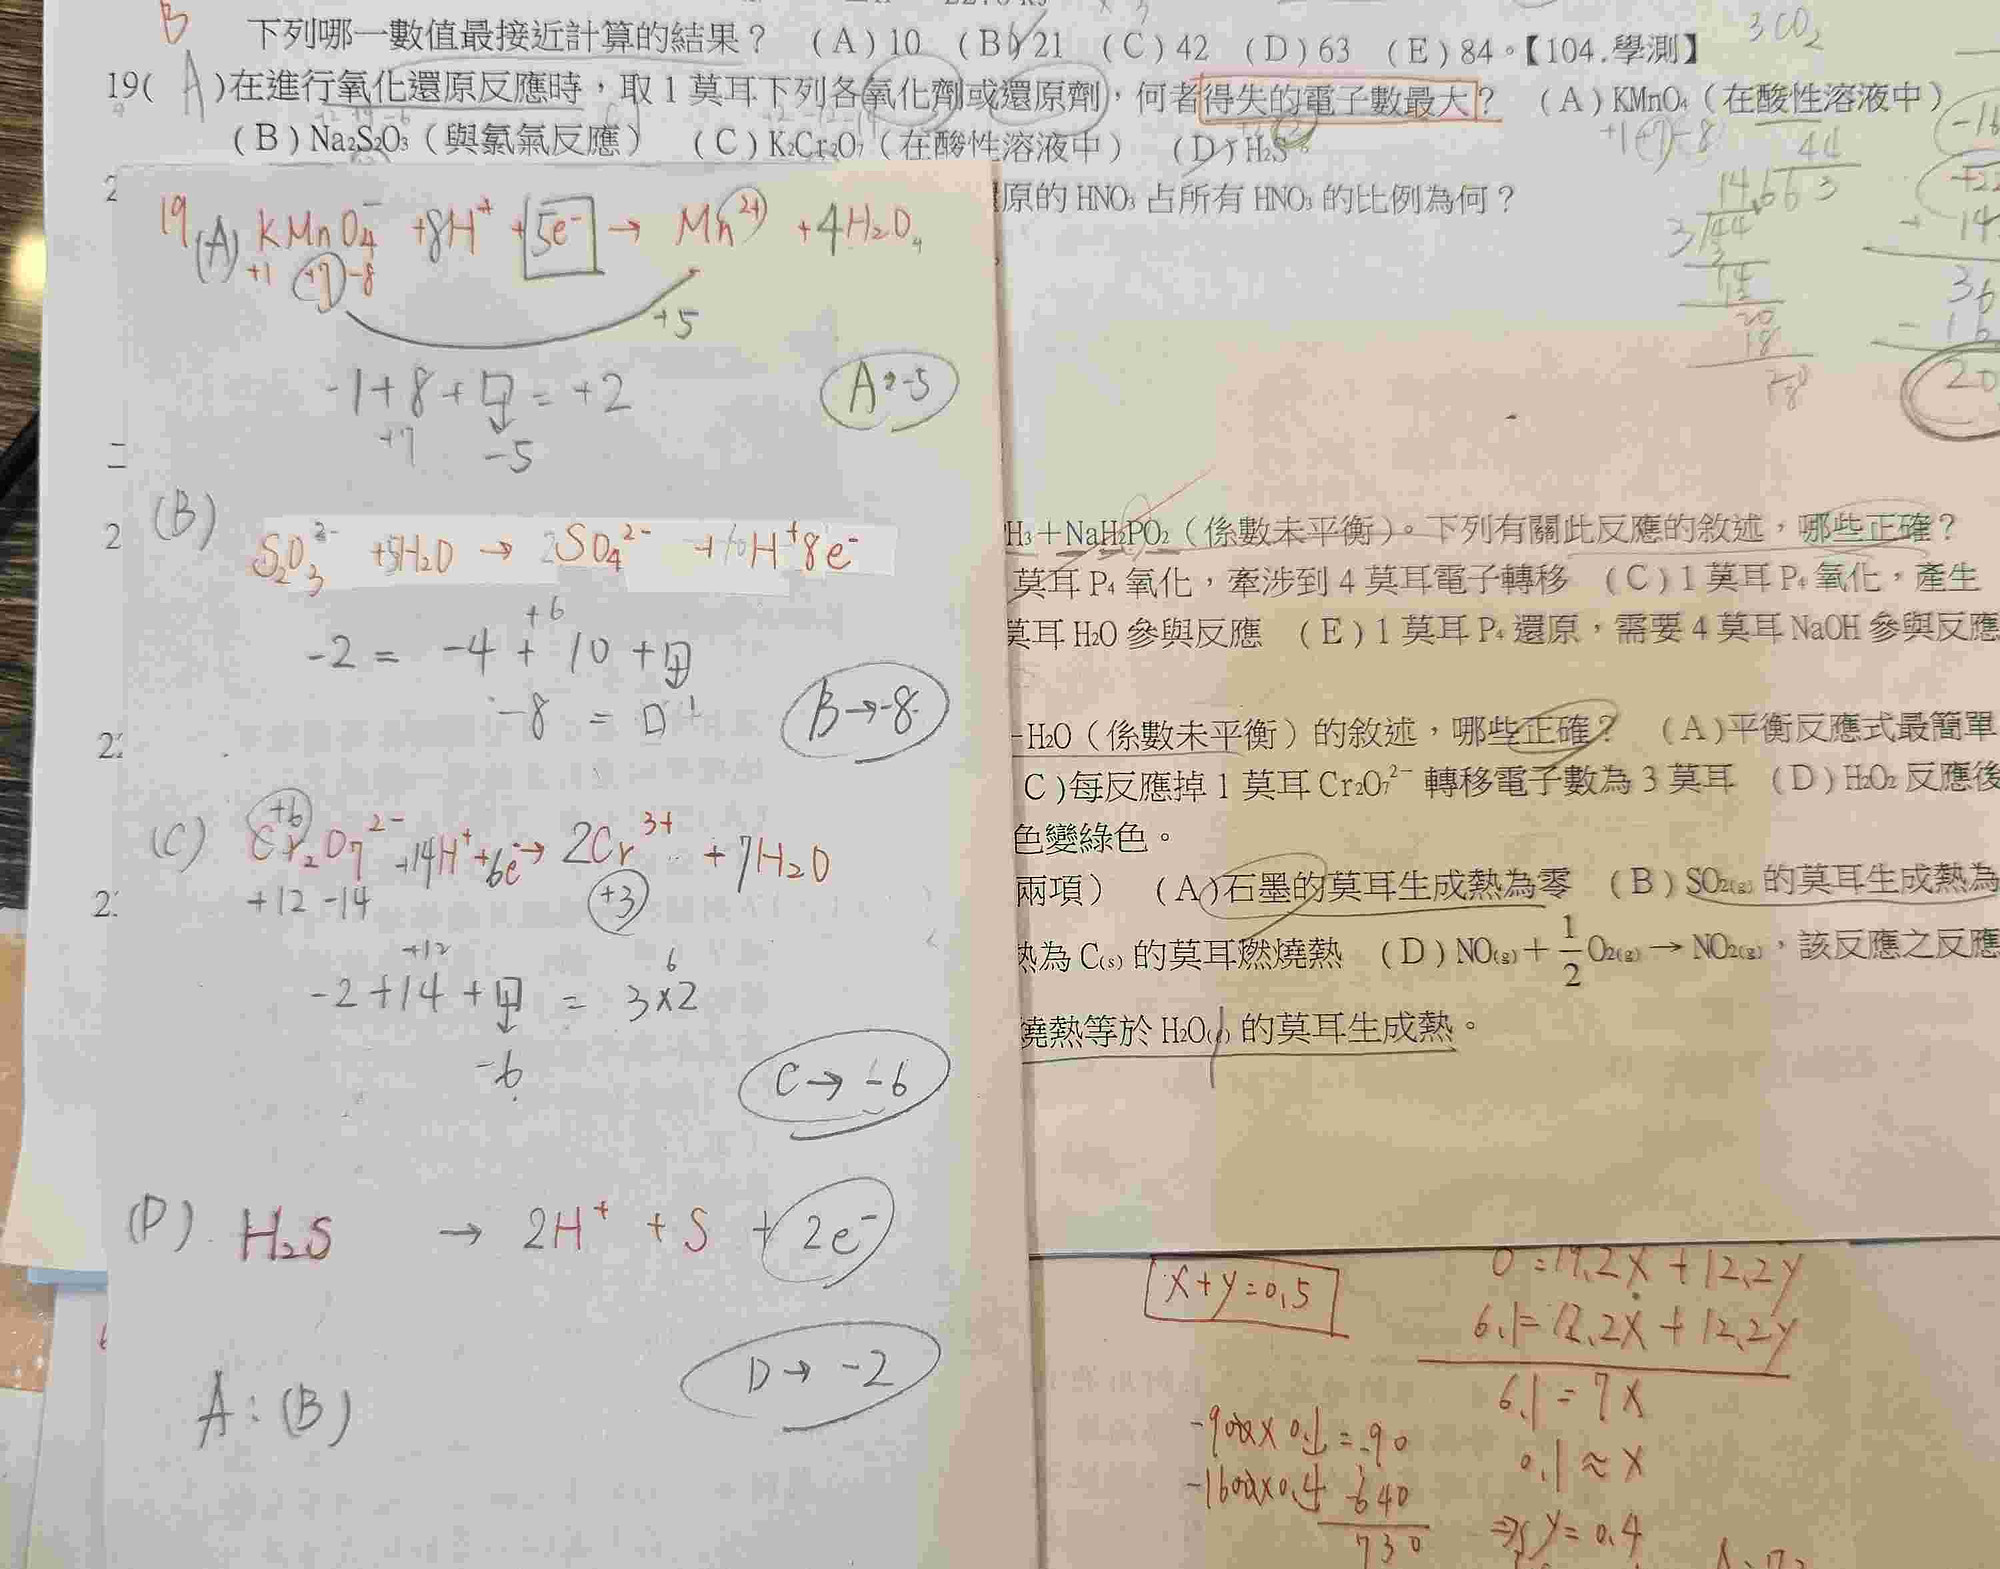 B
下列哪一數值最接近計算的結果？ (A)10 (B)21 (C)42 (D)63 (E)84。【104.學測】
3CO₂
19( A )在進行氧化還原反應時，取1莫耳下列各氧化劑或還原劑，何者得失的電子數最大？ (A)KMnO₄（在酸性溶液中）
(B)Na₂S₂O₃（與氯氣反應） (C)K₂Cr₂O₇（在酸性溶液中） (D)H₂S
+1+7-8
原的HNO₃占所有HNO₃的比例為何？
19 (A) KMnO₄⁻ +8H⁺ +5e⁻ → Mn²⁺ +4H₂O
+1 +7 -8
+5
-1+8+□=+2
+7 -5
A→-5
(B)
S₂O₃²⁻ +5H₂O → 2SO₄²⁻ +10H⁺+8e⁻
+6
-2 = -4 + 10 + □
-8 = □
B→-8
(C) Cr₂O₇²⁻+14H⁺+6e⁻→ 2Cr³⁺ +7H₂O
+6
+12 -14
+3
+12
6
-2+14+□ = 3×2
-6
C→-6
(D) H₂S → 2H⁺ + S + 2e⁻
D→-2
A:(B)
H₃＋NaH₂PO₂（係數未平衡）。下列有關此反應的敘述，哪些正確？
莫耳P₄氧化，牽涉到4莫耳電子轉移 (C)1莫耳P₄氧化，產生
莫耳H₂O參與反應 (E)1莫耳P₄還原，需要4莫耳NaOH參與反應
H₂O（係數未平衡）的敘述，哪些正確？ (A)平衡反應式最簡單
C)每反應掉1莫耳Cr₂O₇²⁻轉移電子數為3莫耳 (D)H₂O₂反應後
色變綠色。
兩項） (A)石墨的莫耳生成熱為零 (B)SO₂(g)的莫耳生成熱為
熱為C(s)的莫耳燃燒熱 (D)NO(g)＋1/2 O₂(g)→NO₂(g)，該反應之反應
燒熱等於H₂O(ℓ)的莫耳生成熱。
44
14.66
3
3/44
3
14
12
20
18
36
20
x+y=0.5
6.1=12.2x+12.2y
6.1=7x
0.1≈x
y=0.4
730